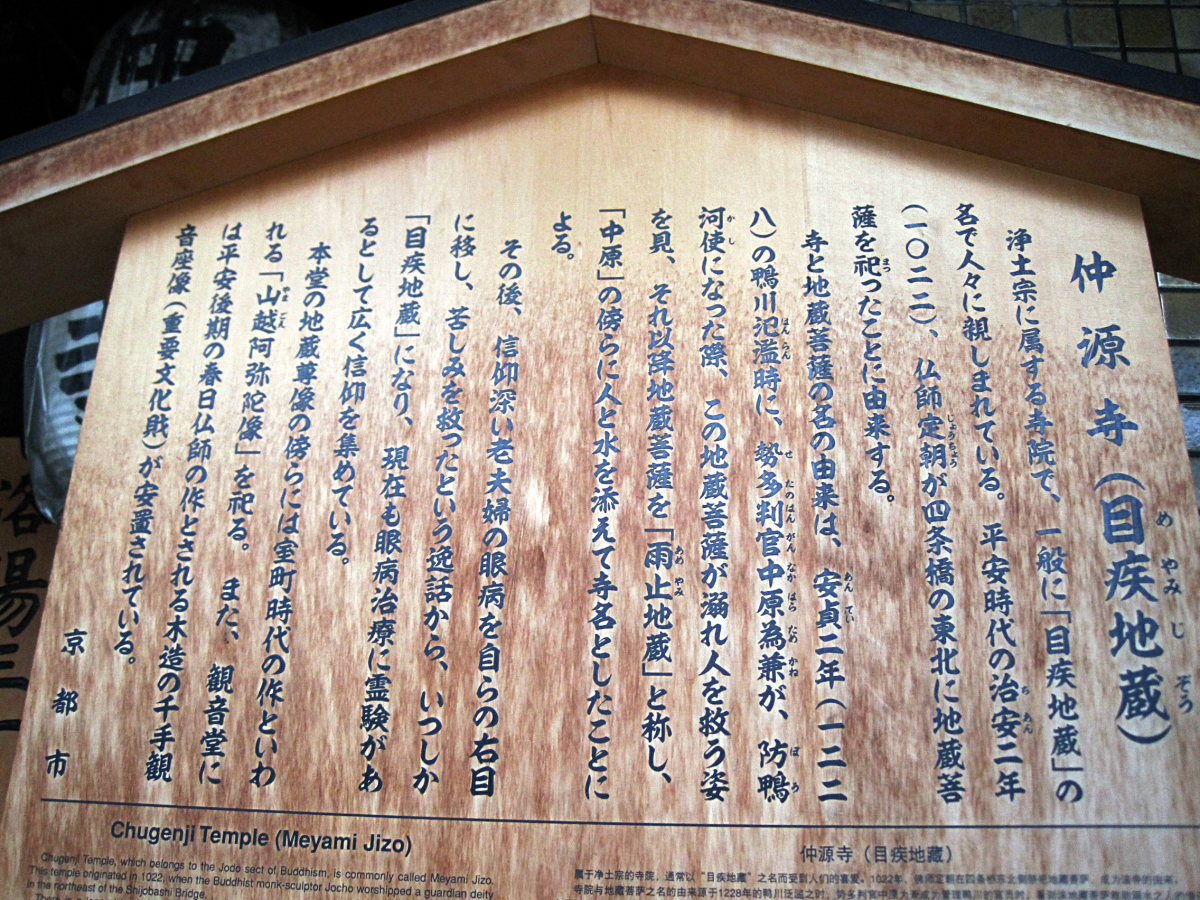 仲源寺（目疾地蔵）
浄土宗に属する寺院で、一般に「目疾地蔵」の
名で人々に親しまれている。平安時代の治安二年
（一〇二二）、仏師定朝が四条橋の東北に地蔵菩
薩を祀ったことに由来する。
寺と地蔵菩薩の名の由来は、安貞二年（一二二
八）の鴨川氾濫時に、勢多判官中原為兼が、防鴨
河使になった際、この地蔵菩薩が溺れ人を救う姿
を見、それ以降地蔵菩薩を「雨止地蔵」と称し、
「中原」の傍らに人と水を添えて寺名としたことに
よる。
その後、信仰深い老夫婦の眼病を自らの右目
に移し、苦しみを救ったという逸話から、いつしか
「目疾地蔵」になり、現在も眼病治療に霊験があ
るとして広く信仰を集めている。
本堂の地蔵尊像の傍らには室町時代の作といわ
れる「山越阿弥陀像」を祀る。また、観音堂に
は平安後期の春日仏師の作とされる木造の千手観
音座像（重要文化財）が安置されている。
京都市
Chugenji Temple (Meyami Jizo)
Chugenji Temple, which belongs to the Jodo sect of Buddhism, is commonly called Meyami Jizo.
This temple originated in 1022, when the Buddhist monk-sculptor Jocho worshipped a guardian deity
in the northeast of the Shijobashi Bridge.
仲源寺（目疾地藏）
属于净土宗的寺院，通常以"目疾地藏"之名而受到人们的喜爱。1022年，
寺院与地藏菩萨之名的由来源于1228年的鸭川泛滥之时，